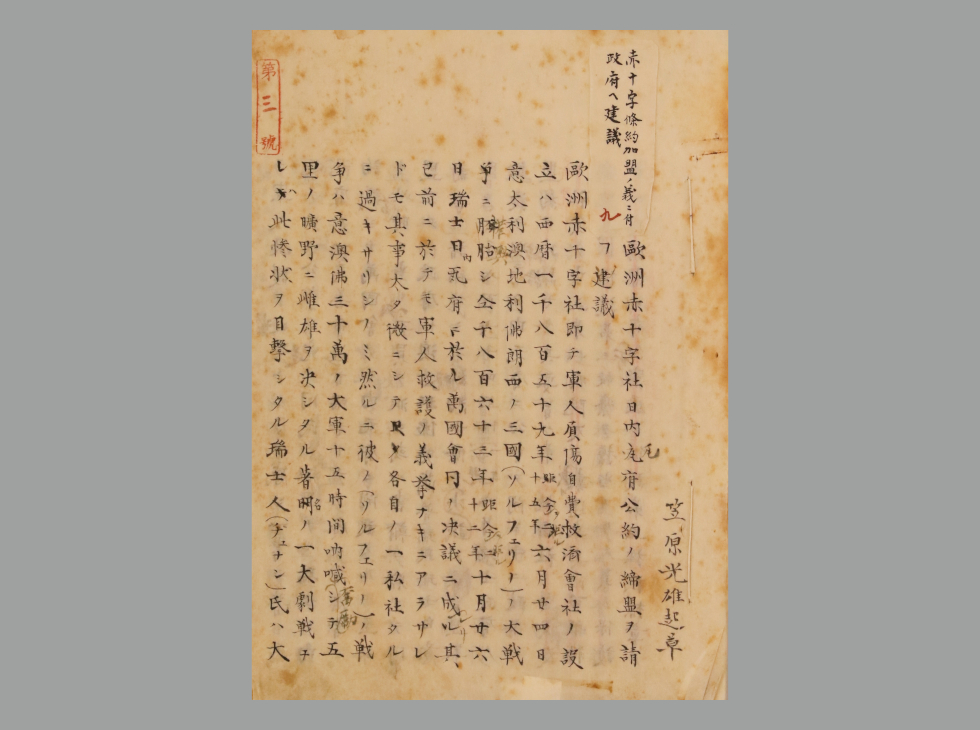 第三號
赤十字條約加盟ノ義ニ付
政府ヘ建議
笠原光雄起草
歐洲赤十字社日内瓦府公約ノ締盟ヲ請
フ建議
九
歐洲赤十字社即チ軍人負傷自費救濟會社ノ設
立ハ西暦一千八百五十九年距今十五年六月廿四日
意太利澳地利佛朗西ノ三國(ソルフェリーノ)ノ大戰
爭ニ胚胎シ仝千八百六十三年距今十二年十月廿六
日瑞士日内瓦府ニ於ル萬國會同ノ决議ニ成ル其
已前ニ於テモ軍人救護ノ義挙ナキニアラサレ
ドモ其事大タ微ニシテ各自ノ一私社タル
ニ過キサリシノミ然ルニ彼ノ(ソルフェリーノ)ノ戰
争ハ意澳佛三十萬ノ大軍十五時間吶喊シテ五
里ノ曠野ニ雌雄ヲ决シタル著名ノ一大劇戰ナ
レバ此惨状ヲ目撃シタル瑞士人(チュナン)氏ハ大